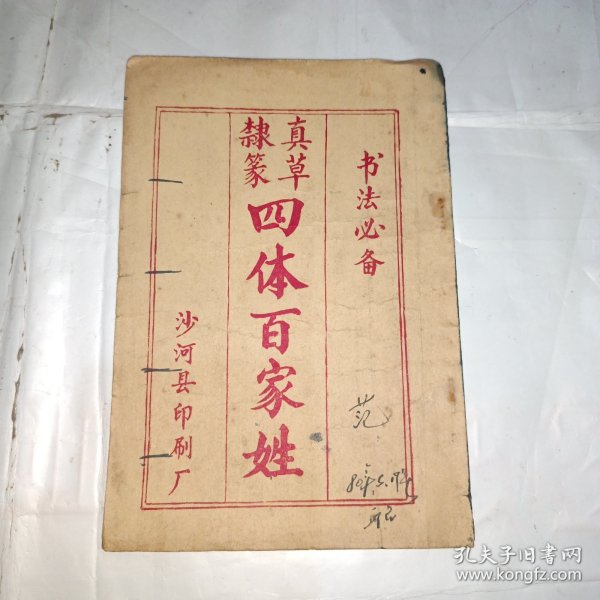 书法必备
真草
隸篆
四体百家姓
沙河县印刷厂
范
孔夫子旧书网
www.kongfz.com